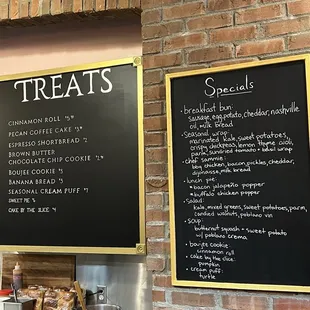 TREATS
CINNAMON ROLL
PECAN COFFEE CAKE
ESPRESSO SHORTBREAD
BROWN BUTTER
CHOCOLATE CHIP COOKIE
BOUJEE COOKIE
BANANA BREAD
SEASONAL CREAM PUFF
SWEET PIE
CAKE BY THE SLICE
Specials
• breakfast bun:
sausage, egg, potato, cheddar, nashville
oil, milk bread
• Seasonal wrap:
marinated kale, sweet potatoes,
crispy chickpeas, lemon thyme aioli,
parm, sundried tomato + basil wrap
• chef sammie:
bbq chicken, bacon, pickles, cheddar,
dijonnaise, milk bread
• lunch pie:
• bacon jalapeño popper
• buffalo chicken popper
• Salad:
kale, mixed greens, sweet potatoes, parm,
candied walnuts, poblano vin
• soup:
butternut squash + sweet potato
w/ poblano crema
• boujee cookie:
cinnamon roll
• cake by the slice:
pumpkin
• cream puff:
turtle